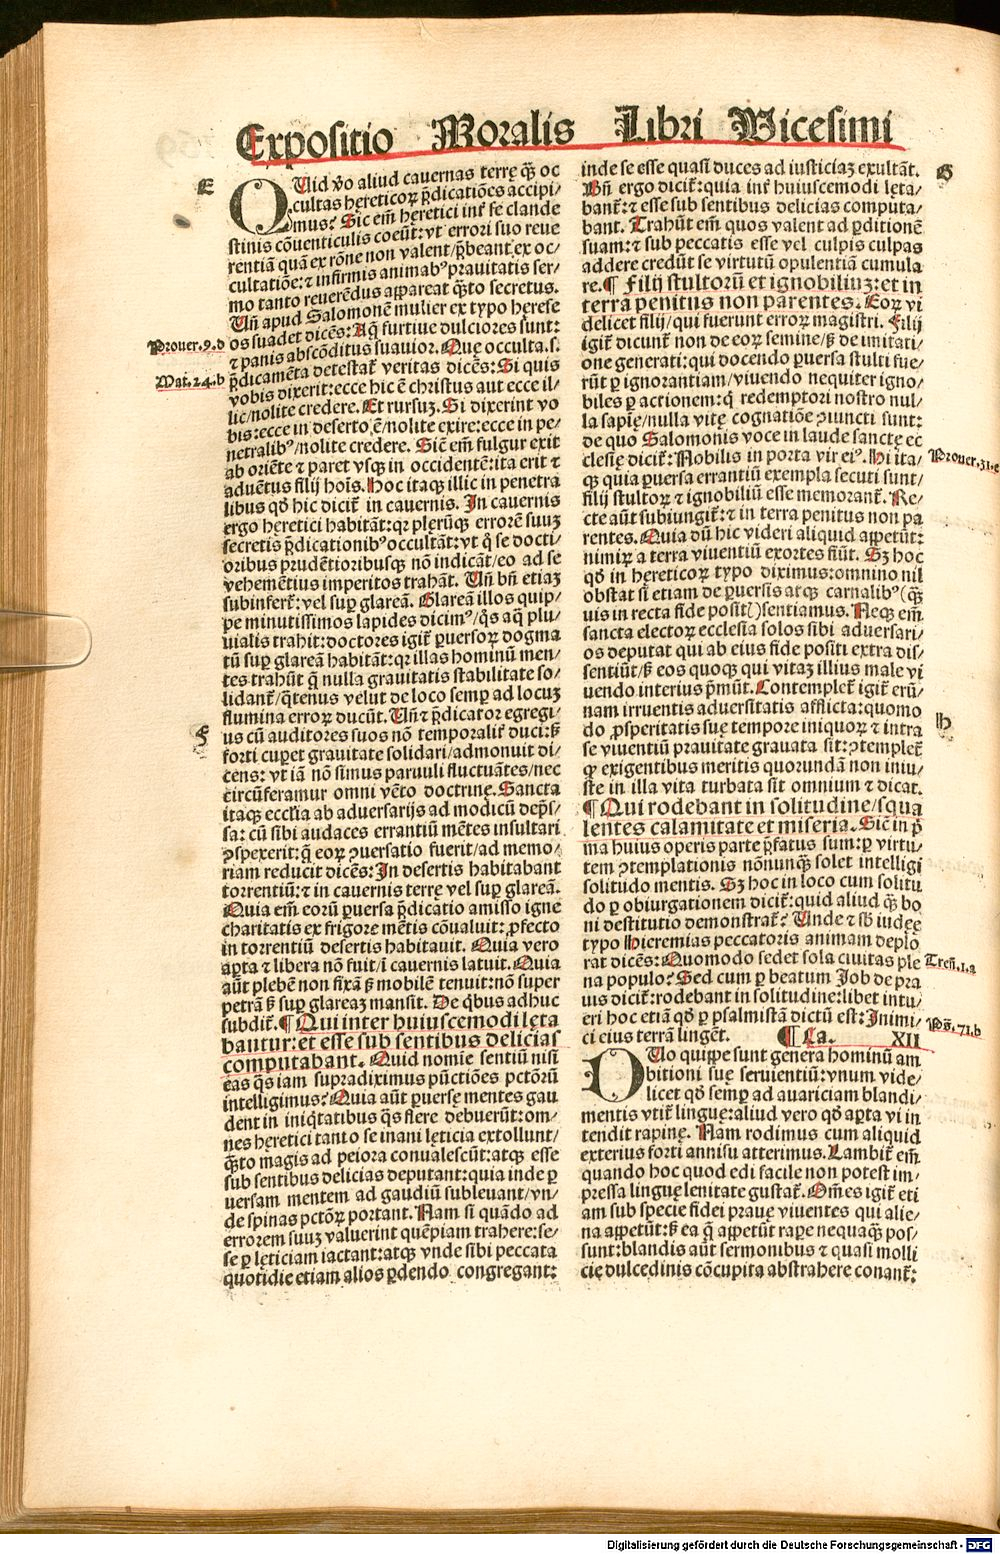 Expositio Moralis Libri Vicesimi
E
QUid v̄o aliud cavernas terrę q̄ꝫ oc
cultas hęreticoꝝ p̄dicatiōes accipi/
mus? Sic em̄ hęretici int̄ se clande
stinis cōuenticulis coeūt: vt errori suo reue
rentiā quā ex rōne non valent/p̄beant ex oc/
cultatiōe: ⁊ infirmis animabꝰ prauitatis ser/
mo tanto reuerēdus appareat q̄ꝫto secretus.
Uñ apud Salomonē mulier ex typo hęrese
os suadet dicēs: Aq̄ furtiue dulciores sunt:
⁊ panis abscōditus suauior. Quę occulta.s.
p̄dicamēta detestat̄ veritas dicēs: Si quis
vobis dixerit: ecce hic ē christus aut ecce il/
lic/nolite credere. Et rursuꝫ. Si dixerint vo
bis: ecce in deserto ē/nolite exire: ecce in pe/
netralibꝰ/nolite credere. Sic̄ em̄ fulgur exit
ab oriēte ⁊ paret vsqꝫ in occidentē: ita erit ⁊
aduētus filij hoīs. Hoc itaqꝫ illic in penetra
libus qđ hic dicit̄ in cavernis. In cavernis
ergo heretici habitāt: qꝛ plerūqꝫ errorē suuꝫ
secretis p̄dicationibꝰ occultāt: vt q̊ se docti/
oribus prudētioribusqꝫ nō indicāt/eo ad se
vehemētius imperitos trahāt. Uñ bñ etiaꝫ
subinfert̄: vel suꝑ glareā. Glareā illos quip/
pe minutissimos lapides dicimꝰ/q̊s aq̄ plu/
uialis trahit: doctores igit̄ ꝑuersoꝝ dogma
tū suꝑ glareā habitāt: qꝛ illas hominū men/
tes trahūt q̄ nulla grauitatis stabilitate so/
lidant̄/q̄tenus velut de loco semꝑ ad locuꝫ
flumina erroꝝ ducūt. Uñ ⁊ p̄dicator egregi/
us cū auditores suos nō temporalit̄ duci: ꝫ
forti cuꝑet grauitate solidari/admonuit di/
cens: vt iā nō simus paruuli fluctuātes/nec
circūferamur omni vēto doctrinę. Sancta
itaqꝫ eccl̄ia ab aduersarijs ad modicū dep̄s/
sa: cū sibi audaces errantiū mētes insultari
ꝯspexerit: q̄ eoꝝ ꝯuersatio fuerit/ad memo/
riam reducit dicēs: In desertis habitabant
torrentiū: ⁊ in cavernis terrę vel suꝑ glareā.
Quia em̄ eorū ꝑuersa p̄dicatio amisso igne
charitatis ex frigore mētis cōualuit: ꝓfecto
in torrentiū desertis habitauit. Quia vero
aꝑta ⁊ libera nō fuit/ī cavernis latuit. Quia
aūt plebē non fixā ꝫ mobilē tenuit: nō super
petrā ꝫ suꝑ glareaꝫ mansit. De q̇bus adhuc
subdit̄. ¶ Qui inter huiuscemodi lęta
bantur: et esse sub sentibus delicias
computabant. Quid nomīe sentiū nisi
eas q̄s iam supradiximus pūctiōes pctōrū
intelligimus? Quia aūt ꝑuersę mentes gau
dent in iniq̇tatibus q̄s flere debuerūt: om/
nes hęretici tanto se inani lęticia extollunt/
q̄ꝫto magis ad peiora conualescūt: atqꝫ esse
sub sentibus delicias deputant: quia inde ꝑ
uersam mentem ad gaudiū subleuant/vn/
de spinas pctōꝝ portant. Nam si quādo ad
errorem suuꝫ valuerint quēpiam trahere: se/
se ꝑ lęticiam iactant: atqꝫ vnde sibi peccata
quotidie etiam alios ꝑdendo congregant:
Prouer.9.d
Mat.24.b
F
inde se esse quasi duces ad iusticiaꝫ exultāt.
Bñ ergo dicit̄: quia int̄ huiuscemodi lęta/
bant̄: ⁊ esse sub sentibus delicias computa/
bant. Trahūt em̄ quos valent ad ꝑditionē
suam: ⁊ sub peccatis esse vel culpis culpas
addere credūt se virtutū opulentiā cumula
re. ¶ Filij stultorū et ignobiliuꝫ: et in
terra penitus non parentes. Eoꝝ vi
delicet filij/qui fuerunt erroꝝ magistri. Filij
igit̄ dicunt̄ non de eoꝝ semine/ꝫ de imitati/
one generati: qui docendo ꝑuersa stulti fue/
rūt ꝑ ignorantiam/viuendo nequiter igno/
biles ꝑ actionem: q̄ redemptori nostro nul/
la sapię/nulla vitę cognatiōe ꝯiuncti sunt:
de quo Salomonis voce in laude sanctę ec
clesię dicit̄: Nobilis in porta vir eiꝰ. Hi ita/
qꝫ quia ꝑuersa errantiū exempla secuti sunt/
filij stultoꝝ ⁊ ignobiliū esse memorant̄. Re/
cte aūt subiungit̄: ⁊ in terra penitus non pa
rentes. Quia dū hic videri aliquid appetūt:
nimiꝝ a terra viuentiū exortes fiūt. Sꝫ hoc
qđ in hęreticoꝝ typo diximus: omnino nil
obstat si etiam de ꝑuersis atqꝫ carnalibꝰ (q̄ꝫ
uis in recta fide posit) sentiamus. Neqꝫ em̄
sancta electoꝝ ecclesia solos sibi aduersari/
os deputat qui ab eius fide positi extra dis/
sentiūt/ꝫ eos quoqꝫ qui vitaꝫ illius male vi
uendo interius p̄mūt. Contemplet̄ igit̄ erū/
nam irruentis aduersitatis afflicta: quomo
do ꝓsperitatis suę tempore iniquoꝝ ⁊ intra
se viuentiū prauitate grauata sit: ꝯtemplet̄
qꝫ exigentibus meritis quorundā non iniu/
ste in illa vita turbata sit omnium ⁊ dicat.
¶ Qui rodebant in solitudine/squa
lentes calamitate et miseria. Sic̄ in p̄
ma huius operis parte p̄fatus sum: ꝑ virtu/
tem ꝯtemplationis nōnunqꝫ solet intelligi
solitudo mentis. Sꝫ hoc in loco cum solitu
do ꝑ obiurgationem dicit̄: quid aliud q̄ꝫ bo
ni destitutio demonstrat̄? Unde ⁊ sb̄ iudęę
typo Hieremias peccatoris animam deplo
rat dicēs: Quomodo sedet sola ciuitas ple
na populo? Sed cum ꝑ beatum Job de pra
uis dicit̄: rodebant in solitudine: libet intu/
eri hoc etiā qđ ꝑ psalmistā dictū est: Inimi/
ci eius terrā lingēt. ¶ Ca. XII
DUo quippe sunt genera hominū am
bitioni suę seruientiū: vnum vide/
licet qđ semꝑ ad auariciam blandi/
mentis vtit̄ linguę: aliud vero qđ aꝑta vi in
tendit rapinę. Nam rodimus cum aliquid
exterius forti annisu atterimus. Lambit̄ em̄
quando hoc quod edi facile non potest im/
pressa linguę lenitate gustat̄. Om̄es igit̄ eti
am sub specie fidei prauę viuentes qui alie/
na appetūt: ꝫ ea q̄ appetūt raꝑe nequaq̄ꝫ pos/
sunt: blandis aūt sermonibus ⁊ quasi molli
cię dulcedinis cōcupita abstrahere conant̄:
G
Prouer.31.c
H
Tren̄.1.a
Ps̄.71.b
Digitalisierung gefördert durch die Deutsche Forschungsgemeinschaft - DFG